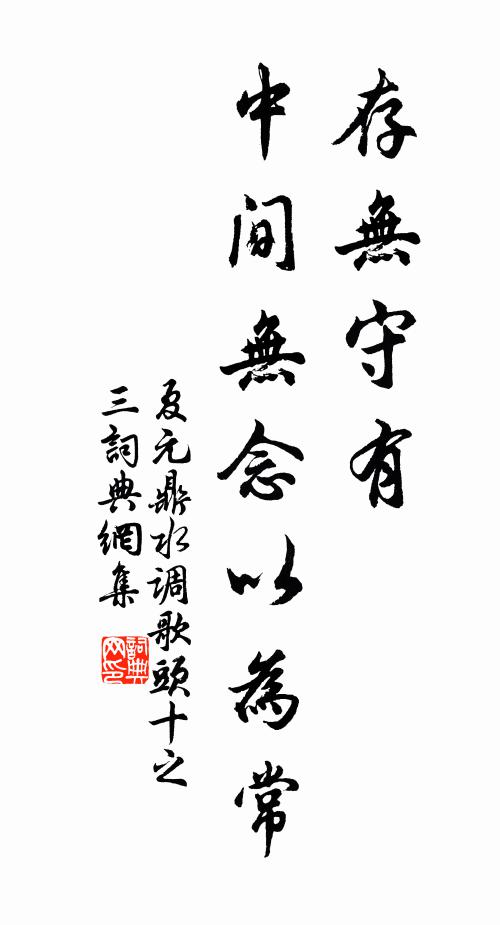 存無守有
中间無念以為常
夏元鼎水调歌頭十之
三詞典網集
詞典
网印